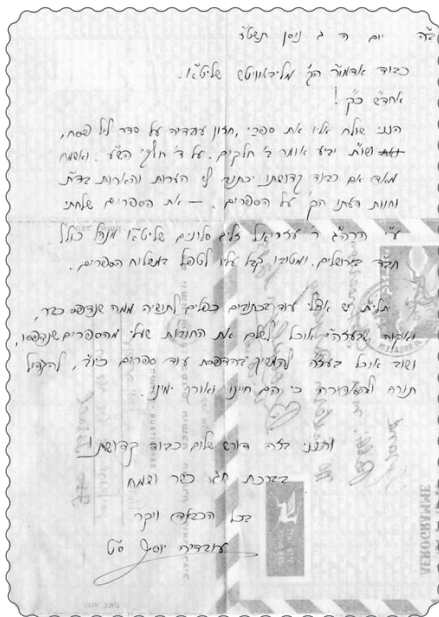 ב"ה יום ה ג ניסן תשט"ו
כבוד אדמו"ר הק' מליובאוויטש שליט"א.
אחדש"כ !
הנני שולח אליו את ספרי, חזון עובדיה על סדר ליל פסח,
ושו"ת יביע אומר ב' חלקים. על ד' חלקי השו"ע. ואשמח
מאד אם כבוד קדושתו יכתוב לי הערות והארות בד"ת
וחוות דעתו הק' על הספרים. — את הספרים שלחתי
ע"י הרה"ג ר' עזריאל זליג סלונים שליט"א מנהל כולל
חבד בירושלים. ומטובו קבל עליו לטפל במשלוח הספרים.
ת"ל יש אצלי עוד בכתובים כפלים לתושיה ממה שנדפס כבר,
ואקוה שבעזה"י אוכל לשלם את החובות שעלי מהספרים שנדפסו,
ושוב אוכל בעזה"י להמשיך בהדפסת עוד ספרים כיו"ב, להגדיל
תורה ולהאדירה כי הם חיינו ואורך ימינו.
והנני בזה דורש שלום כבוד קדושתו
בברכת חג כשר ושמח
בכל הכבוד ויקר
עובדיה יוסף ס"ט
AEROGRAMME